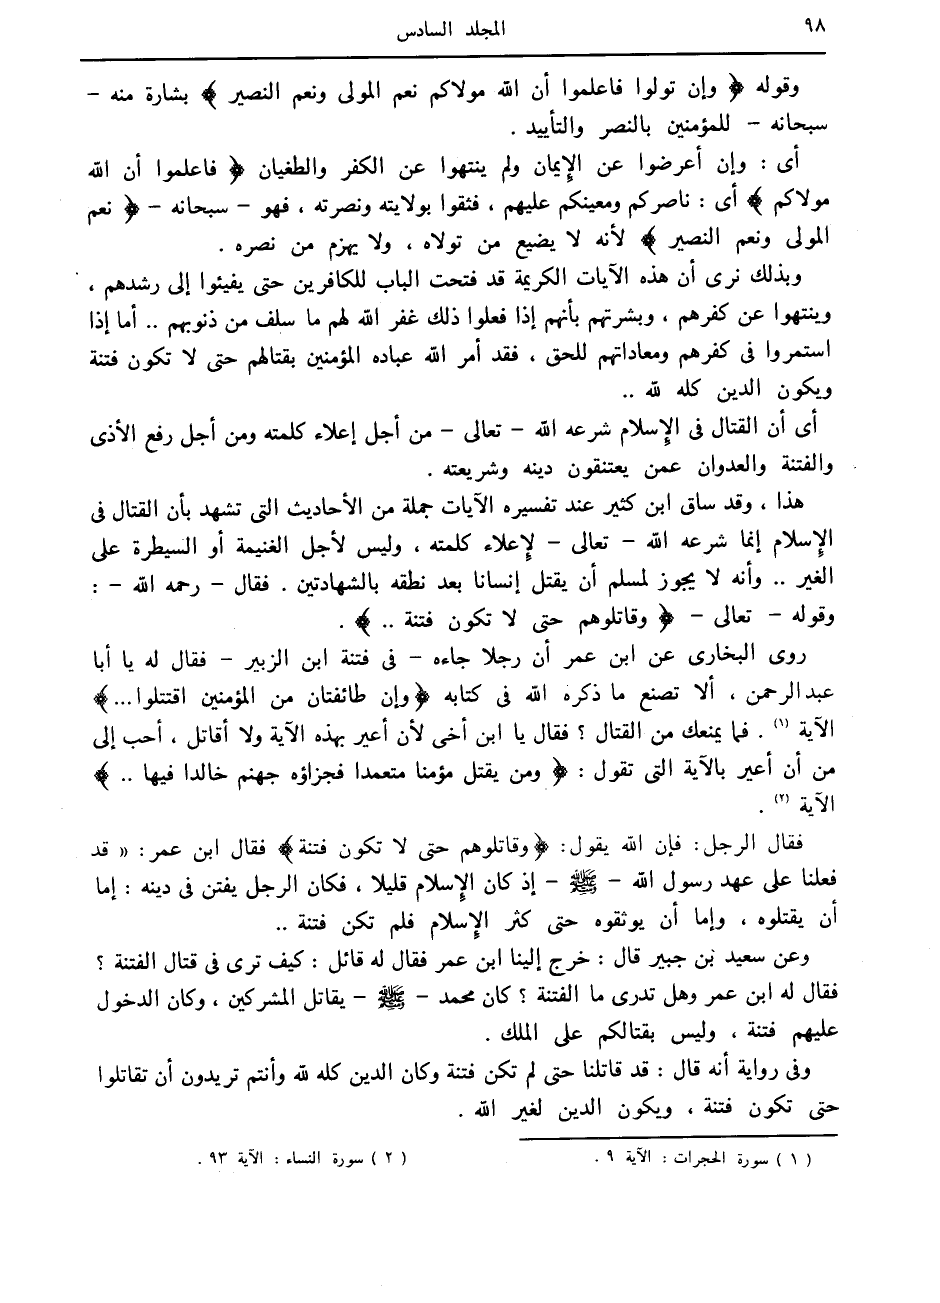 ٩٨
المجلد السادس
وقوله ﴿ وإن تولوا فاعلموا أن الله مولاكم نعم المولى ونعم النصير ﴾ بشارة منه –
سبحانه – للمؤمنين بالنصر والتأييد .
أى : وإن أعرضوا عن الإيمان ولم ينتهوا عن الكفر والطغيان ﴿ فاعلموا أن الله
مولاكم ﴾ أى : ناصركم ومعينكم عليهم ، فثقوا بولايته ونصرته ، فهو – سبحانه – ﴿ نعم
المولى ونعم النصير ﴾ لأنه لا يضيع من تولاه ، ولا يهزم من نصره .
وبذلك نرى أن هذه الآيات الكريمة قد فتحت الباب للكافرين حتى يفيئوا إلى رشدهم ،
وينتهوا عن كفرهم ، وبشرتهم بأنهم إذا فعلوا ذلك غفر الله لهم ما سلف من ذنوبهم .. أما إذا
استمروا فى كفرهم ومعاداتهم للحق ، فقد أمر الله عباده المؤمنين بقتالهم حتى لا تكون فتنة
ويكون الدين كله لله ..
أى أن القتال فى الإسلام شرعه الله – تعالى – من أجل إعلاء كلمته ومن أجل رفع الأذى
والفتنة والعدوان عمن يعتنقون دينه وشريعته .
هذا ، وقد ساق ابن كثير عند تفسيره الآيات جملة من الأحاديث التى تشهد بأن القتال فى
الإسلام إنما شرعه الله – تعالى – لإعلاء كلمته ، وليس لأجل الغنيمة أو السيطرة على
الغير .. وأنه لا يجوز لمسلم أن يقتل إنسانا بعد نطقه بالشهادتين . فقال – رحمه الله – :
وقوله – تعالى – ﴿ وقاتلوهم حتى لا تكون فتنة .. ﴾ .
روى البخارى عن ابن عمر أن رجلا جاءه – فى فتنة ابن الزبير – فقال له يا أبا
عبد الرحمن ، ألا تصنع ما ذكره الله فى كتابه ﴿وإن طائفتان من المؤمنين اقتتلوا...﴾
الآية (١) . فما يمنعك من القتال ؟ فقال يا ابن أخى لأن أعير بهذه الآية ولا أقاتل ، أحب إلى
من أن أعير بالآية التى تقول : ﴿ ومن يقتل مؤمنا متعمدا فجزاؤه جهنم خالدا فيها .. ﴾
الآية (٢) .
فقال الرجل: فإن الله يقول: ﴿وقاتلوهم حتى لا تكون فتنة﴾ فقال ابن عمر: « قد
فعلنا على عهد رسول الله – ﷺ – إذ كان الإسلام قليلا ، فكان الرجل يفتن فى دينه : إما
أن يقتلوه ، وإما أن يوثقوه حتى كثر الإسلام فلم تكن فتنة ..
وعن سعيد بن جبير قال : خرج إلينا ابن عمر فقال له قائل : كيف ترى فى قتال الفتنة ؟
فقال له ابن عمر وهل تدرى ما الفتنة ؟ كان محمد – ﷺ – يقاتل المشركين ، وكان الدخول
عليهم فتنة ، وليس بقتالكم على الملك .
وفى رواية أنه قال : قد قاتلنا حتى لم تكن فتنة وكان الدين كله لله وأنتم تريدون أن تقاتلوا
حتى تكون فتنة ، ويكون الدين لغير الله .
( ١ ) سورة الحجرات : الآية ٩ .
( ٢ ) سورة النساء : الآية ٩٣ .